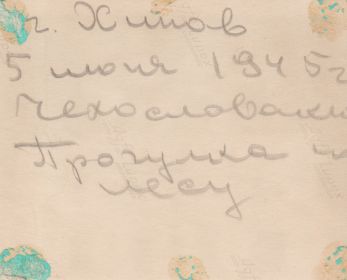 г. Хипов
5 июня 1945 г
Чехословаки
Прогулка по
лесу